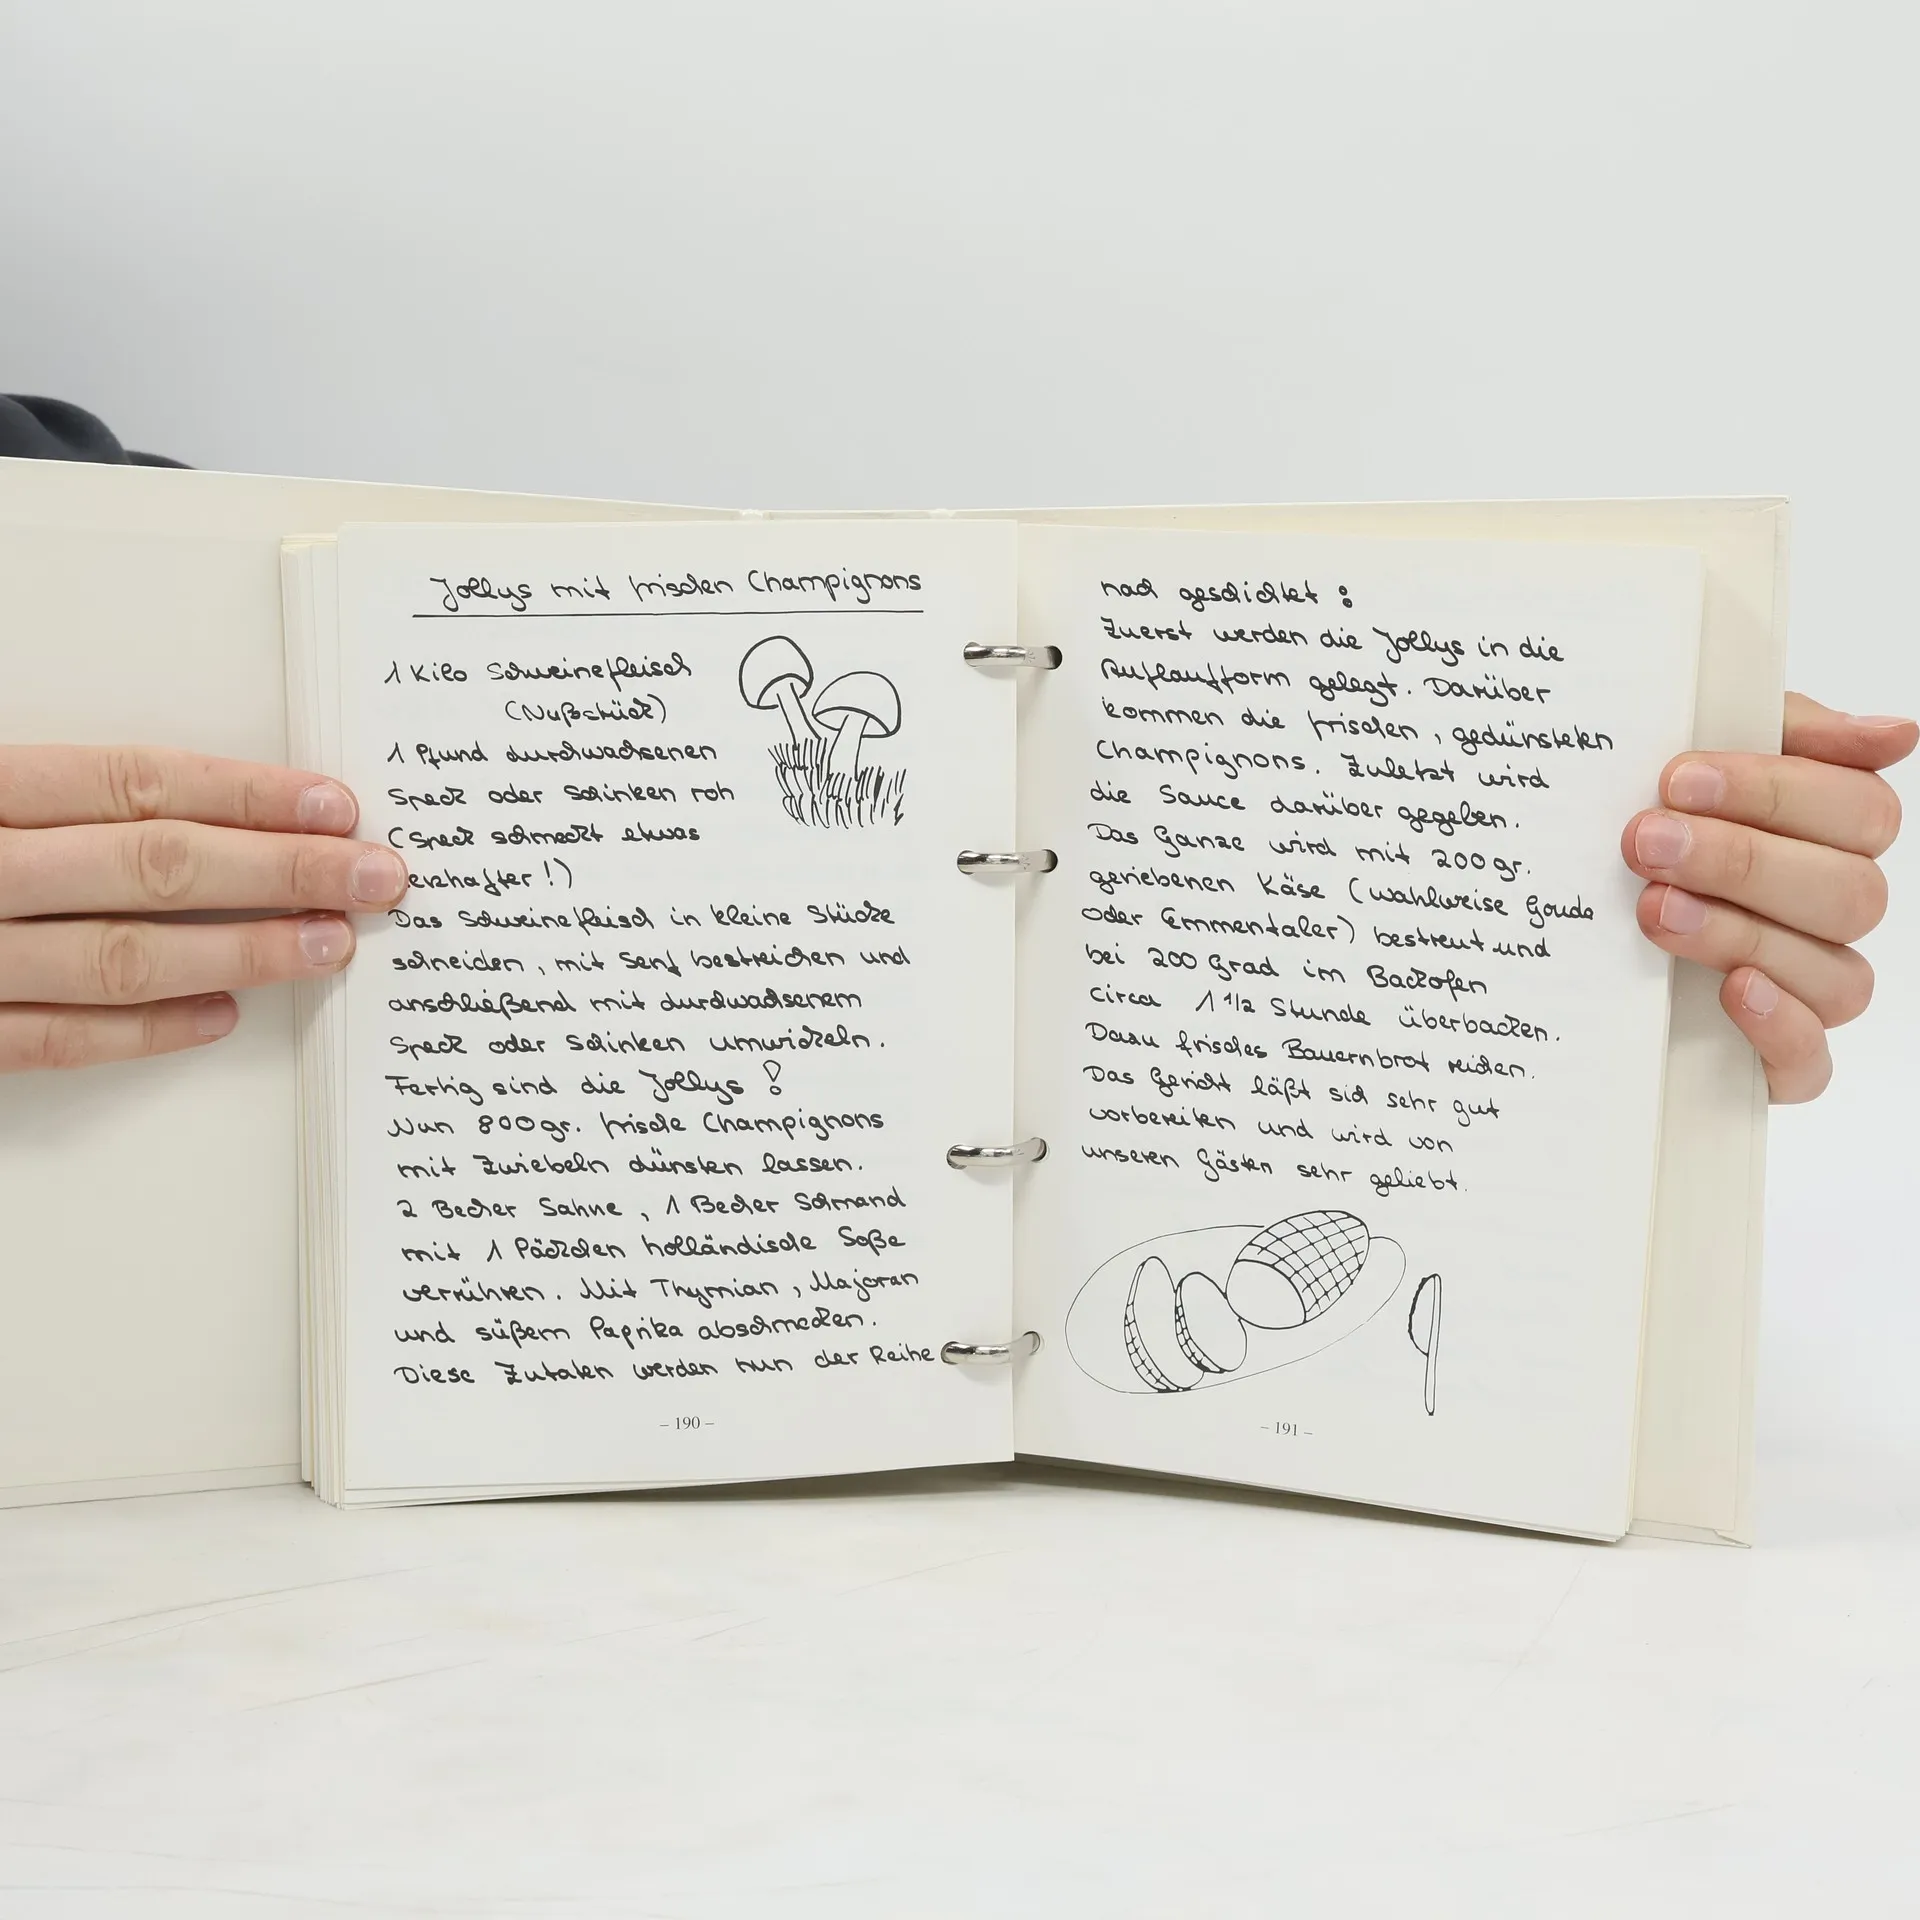 Jollys mit frischen Champignons
1 Kilo Schweinefleisch
(Nußstück)
1 Pfund durchwachsenen
Speck oder Schinken roh
(Speck schmeckt etwas
erzhafter!)
Das Schweinefleisch in kleine Stücke
schneiden, mit Senf bestreichen und
anschließend mit durchwachsenem
Speck oder Schinken umwickeln.
Fertig sind die Jollys!
Nun 800 gr. frische Champignons
mit Zwiebeln dünsten lassen.
2 Becher Sahne, 1 Becher Schmand
mit 1 Päckchen holländische Soße
verrühren. Mit Thymian, Majoran
und süßem Paprika abschmecken.
Diese Zutaten werden nun der Reihe
– 190 –
nach geschichtet:
Zuerst werden die Jollys in die
Auflaufform gelegt. Darüber
kommen die frischen, gedünsteten
Champignons. Zuletzt wird
die Sauce darüber gegeben.
Das Ganze wird mit 200 gr.
geriebenen Käse (wahlweise Gouda
oder Emmentaler) bestreut und
bei 200 Grad im Backofen
circa 1 1/2 Stunde überbacken.
Dazu frisches Bauernbrot reichen.
Das Gericht läßt sich sehr gut
vorbereiten und wird von
unseren Gästen sehr geliebt.
– 191 –